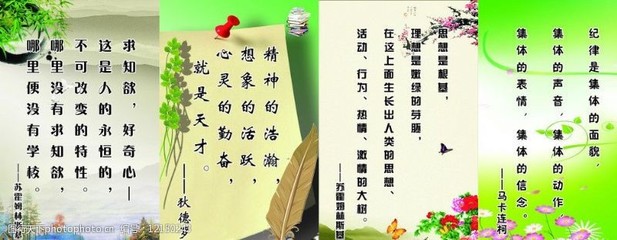 求知欲，好奇心—
这是人的永恒的，
不可改变的特性。
哪里没有求知欲，
哪里便没有学校。
——苏霍姆林斯基
精神的浩瀚，
想象的活跃，
心灵的勤奋，
就是天才。
——狄德罗
思想是根基，
理想是嫩绿的芽胚，
在这上面生长出人类的思想、
活动、行为、热情、激情的大树。
——苏霍姆林斯基
纪律是集体的面貌，
集体的声音，集体的动作
集体的表情，集体的信念。
——马卡连柯